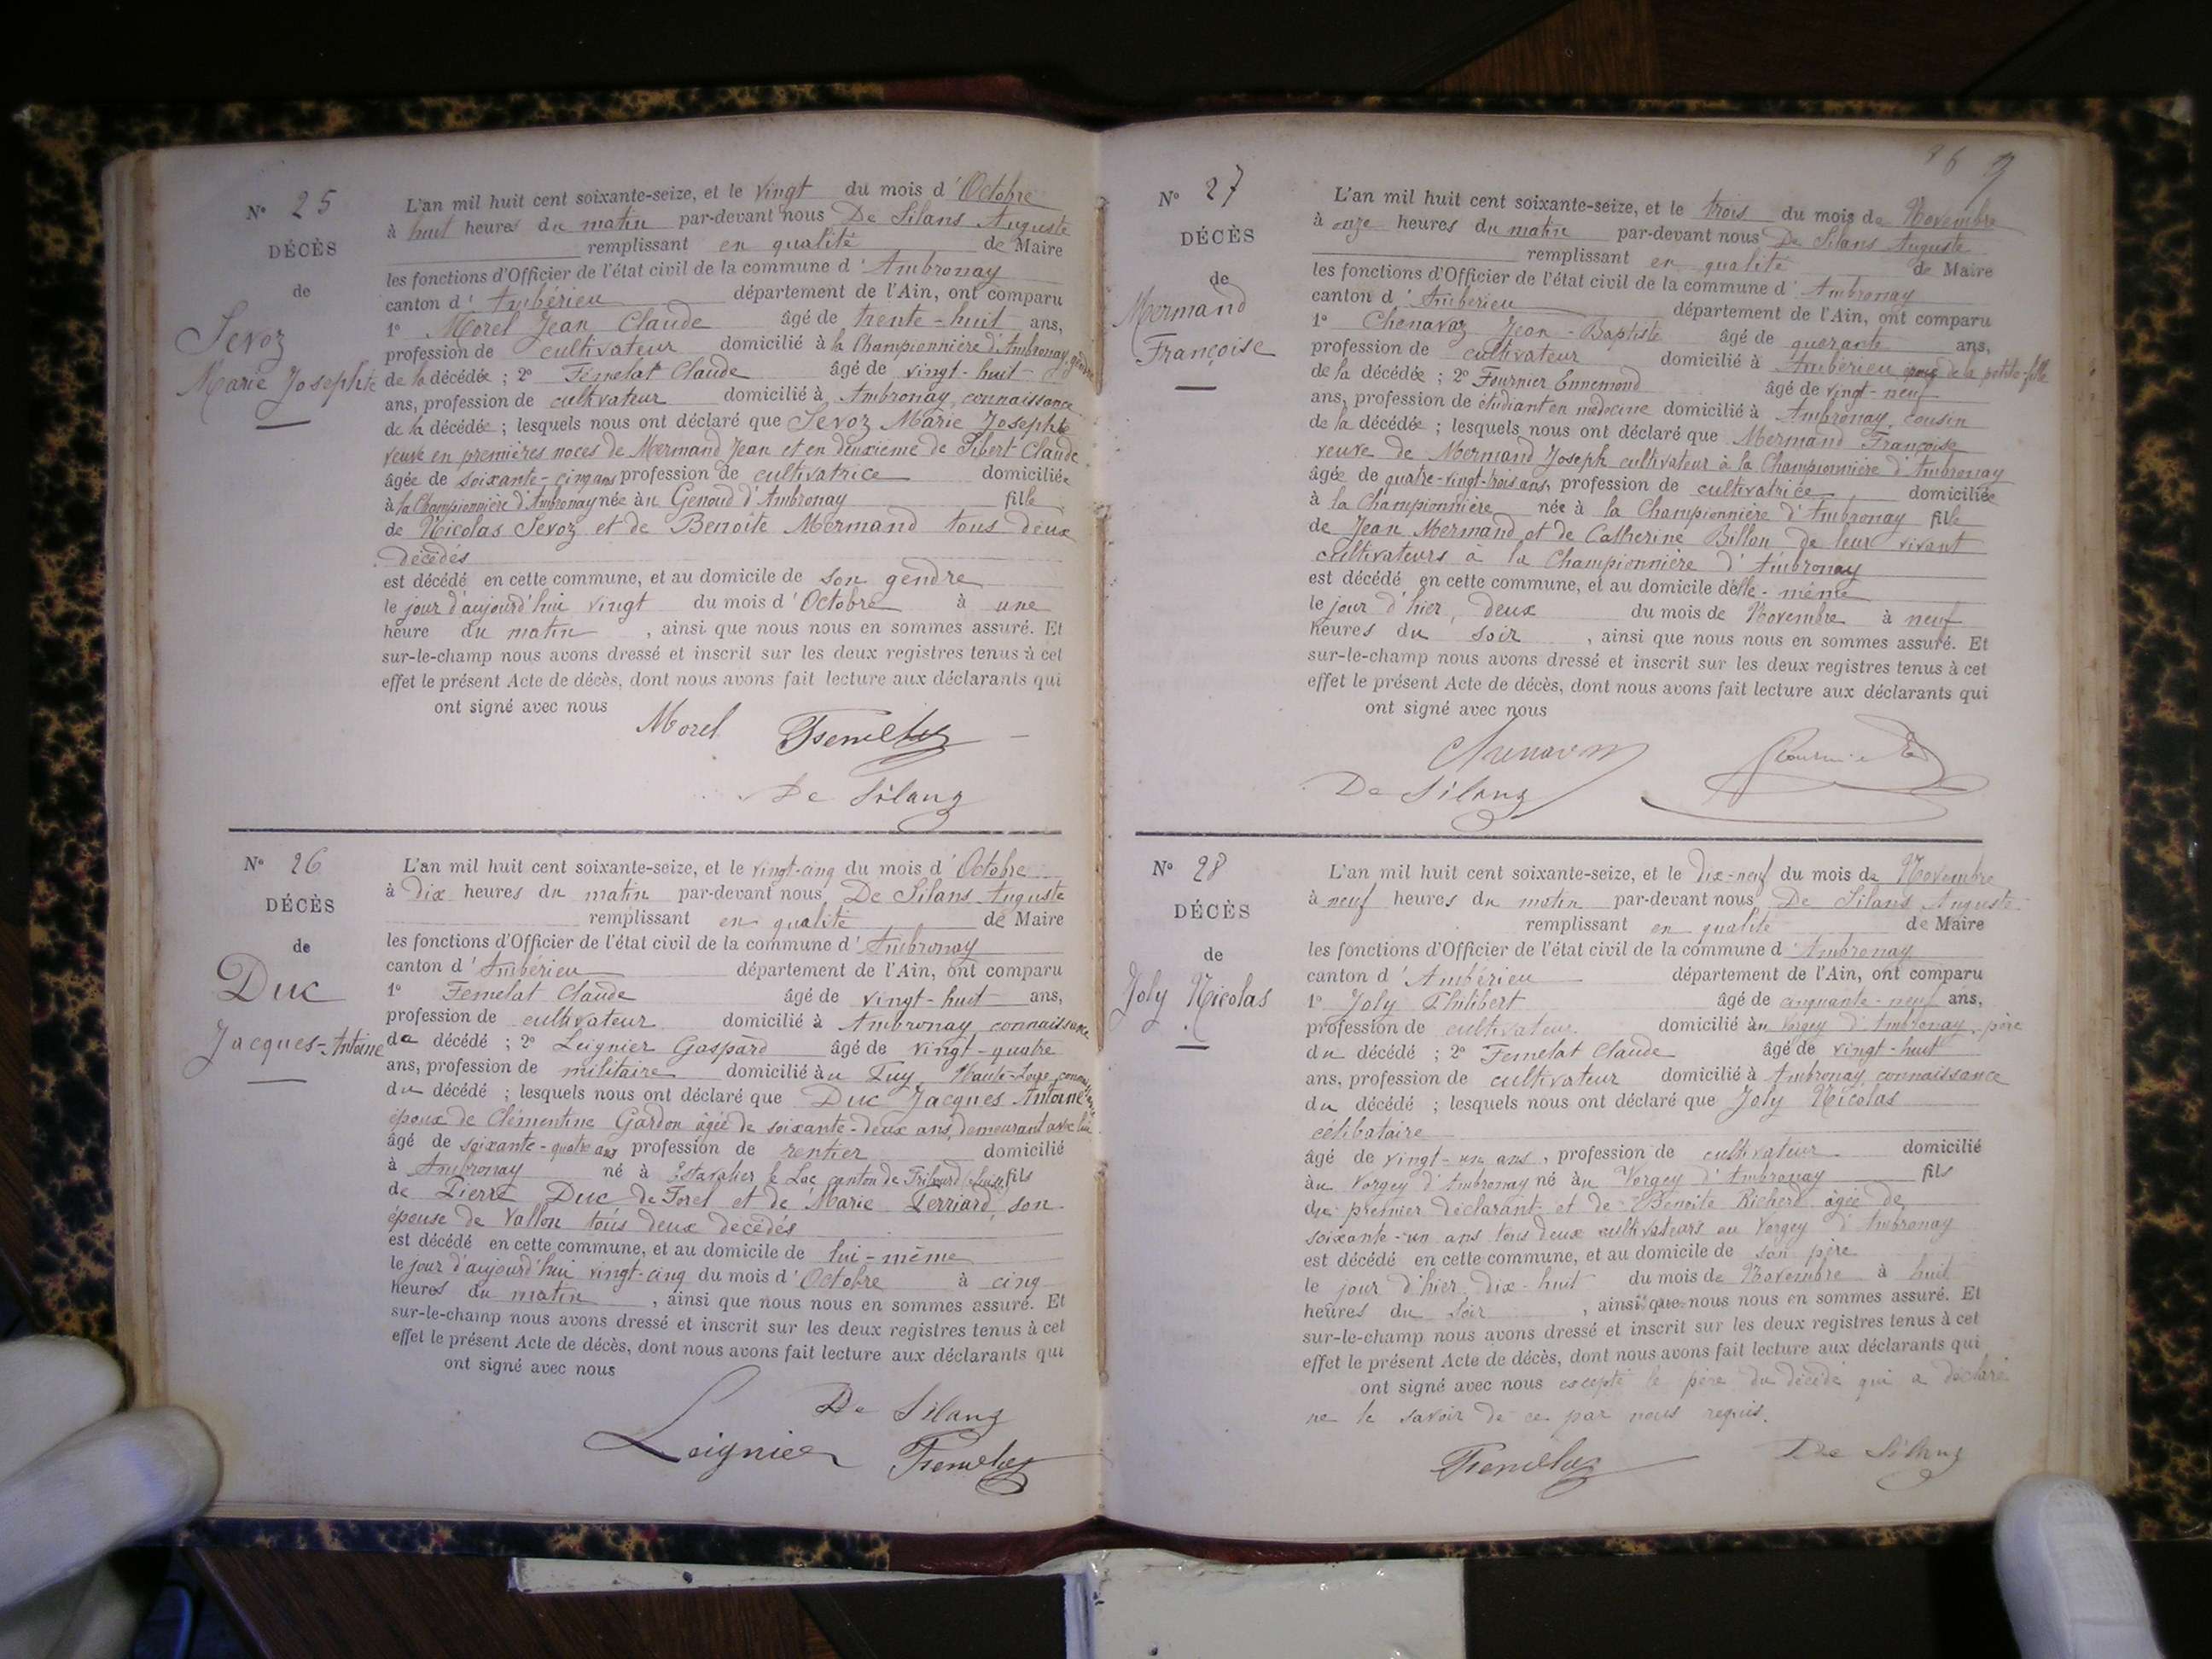 N° 25
DÉCÈS
de
Sevoz
Marie Josephte
L'an mil huit cent soixante-seize, et le vingt du mois d'Octobre
à huit heures du matin par-devant nous De Silans Auguste
remplissant en qualité de Maire
les fonctions d'Officier de l'état civil de la commune d'Ambronay
canton d'Ambérieu département de l'Ain, ont comparu
1° Morel Jean Claude âgé de trente-huit ans,
profession de cultivateur domicilié à la Championnière d'Ambronay, gendre
de la décédée ; 2° Femelat Claude âgé de vingt-huit
ans, profession de cultivateur domicilié à Ambronay, connaissance
de la décédée ; lesquels nous ont déclaré que Sevoz Marie Josephte
veuve en premières noces de Mermand Jean et en deuxième de Sibert Claude
âgée de soixante-cinq ans profession de cultivatrice domiciliée
à la Championnière d'Ambronay née à u Genoud d'Ambronay fille
de Nicolas Sevoz et de Benoite Mermand tous deux
décédés
est décédé en cette commune, et au domicile de son gendre
le jour d'aujourd'hui vingt du mois d'Octobre à une
heure du matin, ainsi que nous nous en sommes assuré. Et
sur-le-champ nous avons dressé et inscrit sur les deux registres tenus à cet
effet le présent Acte de décès, dont nous avons fait lecture aux déclarants qui
ont signé avec nous
Morel Femelat
De Silans
N° 26
DÉCÈS
de
Duc
Jacques-Antoine
L'an mil huit cent soixante-seize, et le vingt-cinq du mois d'Octobre
à dix heures du matin par-devant nous De Silans Auguste
remplissant en qualité de Maire
les fonctions d'Officier de l'état civil de la commune d'Ambronay
canton d'Ambérieu département de l'Ain, ont comparu
1° Femelat Claude âgé de vingt-huit ans,
profession de cultivateur domicilié à Ambronay, connaissance
du décédé ; 2° Leignier Gaspard âgé de vingt-quatre
ans, profession de militaire domicilié à u Puy, Haute-Loire, connaissance
du décédé ; lesquels nous ont déclaré que Duc Jacques Antoine
époux de Clémentine Gardon âgée de soixante-deux ans, demeurant avec lui
âgé de soixante-quatre ans profession de rentier domicilié
à Ambronay né à le Lac canton de Fribourd (Suisse) fils
de Pierre Duc de Forel et de Marie Perriard, son
épouse de Vallon tous deux décédés
est décédé en cette commune, et au domicile de lui-même
le jour d'aujourd'hui vingt-cinq du mois d'Octobre à cinq
heures du matin, ainsi que nous nous en sommes assuré. Et
sur-le-champ nous avons dressé et inscrit sur les deux registres tenus à cet
effet le présent Acte de décès, dont nous avons fait lecture aux déclarants qui
ont signé avec nous
De Silans
Leignier Femelat
N° 27
DÉCÈS
de
Mermand
Françoise
L'an mil huit cent soixante-seize, et le trois du mois de Novembre
à onze heures du matin par-devant nous De Silans Auguste
remplissant en qualité de Maire
les fonctions d'Officier de l'état civil de la commune d'Ambronay
canton d'Ambérieu département de l'Ain, ont comparu
1° Chenavaz Jean-Baptiste âgé de quarante ans,
profession de cultivateur domicilié à Ambérieu époux de la petite-fille
de la décédée ; 2° Fournier Ennemond âgé de vingt-neuf
ans, profession de étudiant en médecine domicilié à Ambronay, cousin
de la décédée ; lesquels nous ont déclaré que Mermand Françoise
veuve de Mermand Joseph cultivateur à la Championnière d'Ambronay
âgée de quatre-vingt-trois ans, profession de cultivatrice domiciliée
à la Championnière née à la Championnière d'Ambronay fille
de Jean Mermand et de Catherine Billon de leur vivant
cultivateurs à la Championnière d'Ambronay
est décédé en cette commune, et au domicile d'elle-même
le jour d'hier, deux du mois de Novembre à neuf
heures du soir, ainsi que nous nous en sommes assuré. Et
sur-le-champ nous avons dressé et inscrit sur les deux registres tenus à cet
effet le présent Acte de décès, dont nous avons fait lecture aux déclarants qui
ont signé avec nous
De Silans
N° 28
DÉCÈS
de
Joly Nicolas
L'an mil huit cent soixante-seize, et le dix-neuf du mois de Novembre
à neuf heures du matin par-devant nous De Silans Auguste
remplissant en qualité de Maire
les fonctions d'Officier de l'état civil de la commune d'Ambronay
canton d'Ambérieu département de l'Ain, ont comparu
1° Joly Philibert âgé de cinquante-neuf ans,
profession de cultivateur domicilié à u Vorgey d'Ambronay, père
du décédé ; 2° Femelat Claude âgé de vingt-huit
ans, profession de cultivateur domicilié à Ambronay, connaissance
du décédé ; lesquels nous ont déclaré que Joly Nicolas
célibataire
âgé de vingt-un ans, profession de cultivateur domicilié
à u Vorgey d'Ambronay né à u Vorgey d'Ambronay fils
du premier déclarant et de Benoite Richerd âgée de
soixante-un ans tous deux cultivateurs au Vorgey d'Ambronay
est décédé en cette commune, et au domicile de son père
le jour d'hier dix-huit du mois de Novembre à huit
heures du soir, ainsi que nous nous en sommes assuré. Et
sur-le-champ nous avons dressé et inscrit sur les deux registres tenus à cet
effet le présent Acte de décès, dont nous avons fait lecture aux déclarants qui
ont signé avec nous excepté le père du décédé qui a déclaré
ne le savoir de ce par nous requis.
Femelat De Silans